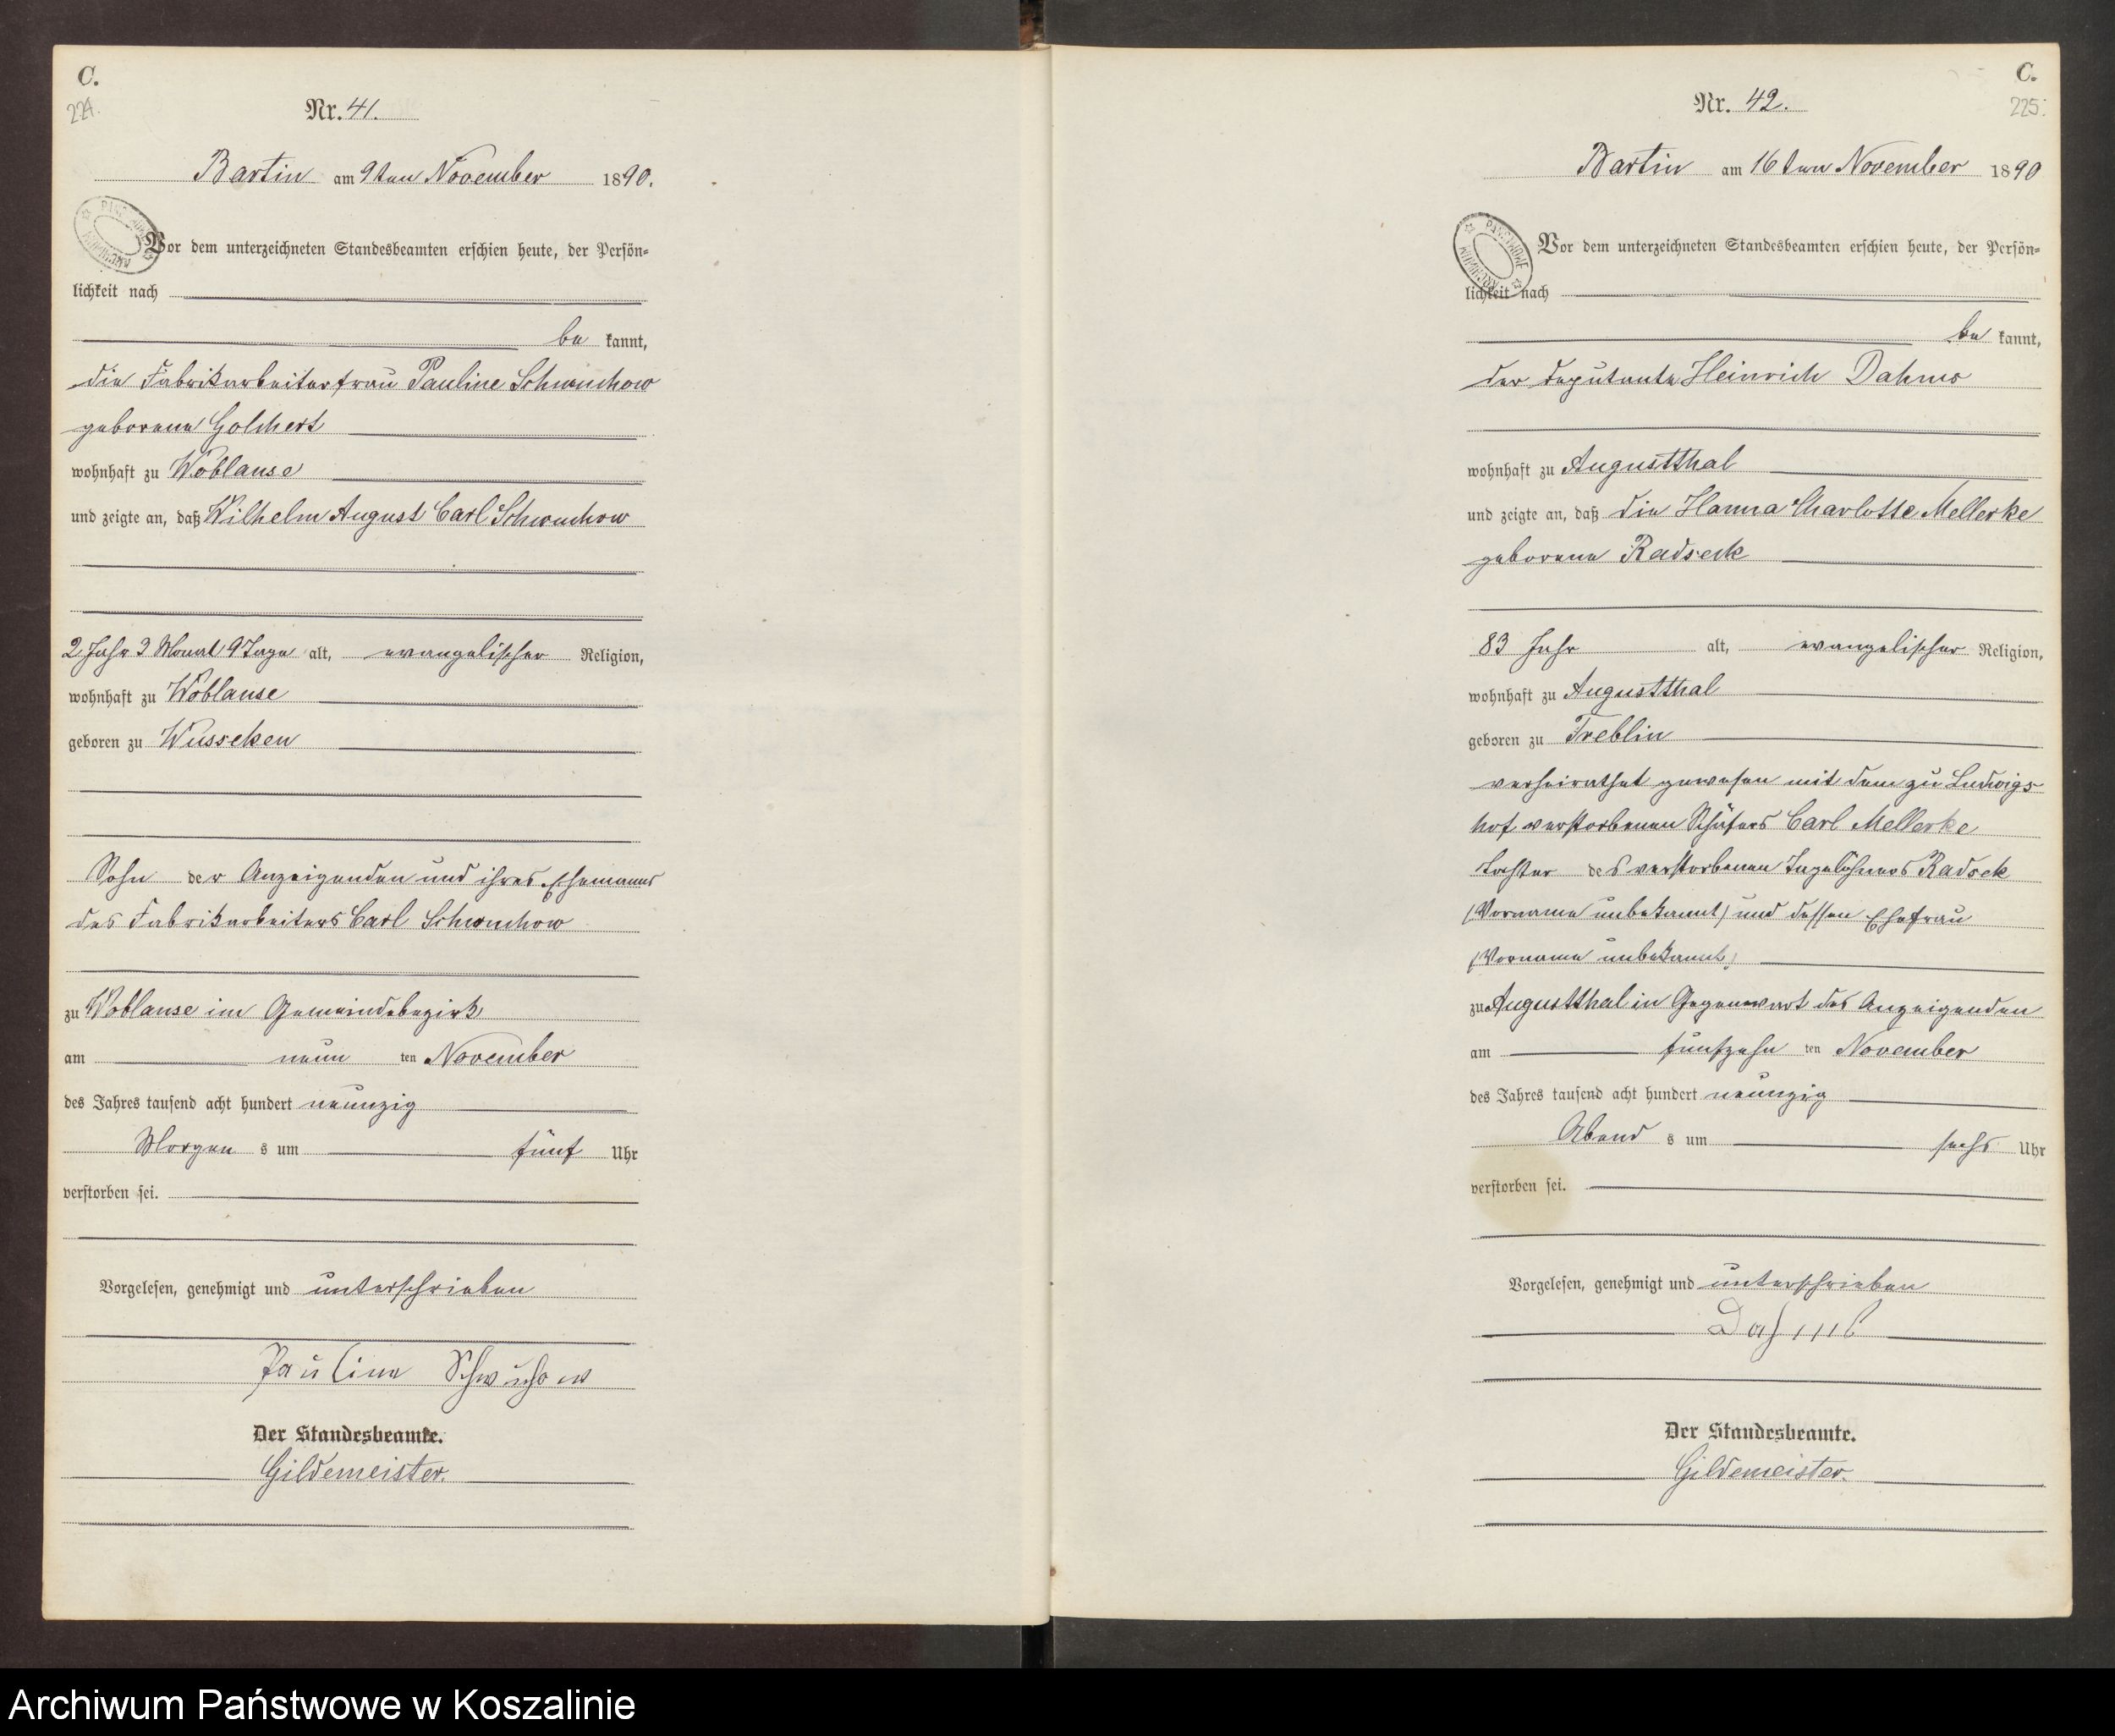 C.
224.
Nr. 41.
Bartin am 9ten November 1890.
Vor dem unterzeichneten Standesbeamten erschien heute, der Persön-
lichkeit nach
be kannt,
die Fabrikarbeiterfrau Pauline Schwuchow
geborene Golchert
wohnhaft zu Woblanse
und zeigte an, daß Wilhelm August Carl Schwuchow
2 Jahr 3 Monat 9 Tage alt, evangelischer Religion,
wohnhaft zu Woblanse
geboren zu Wusseken
Sohn der Anzeigenden und ihres Ehemannes
des Fabrikarbeiters Carl Schwuchow
zu Woblanse im Gemeindebezirk
am neun ten November
des Jahres tausend acht hundert neunzig
Morgen s um fünf Uhr
verstorben sei.
Vorgelesen, genehmigt und unterschrieben
Pauline Schwuchow
Der Standesbeamte.
Gildemeister.
C.
225.
Nr. 42.
Bartin am 16ten November 1890
Vor dem unterzeichneten Standesbeamten erschien heute, der Persön-
lichkeit nach
be kannt,
der Deputante Heinrich Dahms
wohnhaft zu Augustthal
und zeigte an, daß die Hanna Charlotte Mellerke
geborene Radseck
83 Jahr alt, evangelischer Religion,
wohnhaft zu Augustthal
geboren zu Treblin
verheirathet gewesen mit dem zu Ludwigs-
hof verstorbenen Schäfers Carl Mellerke
Tochter des verstorbenen Tagelöhners Radsek
(Vorname unbekannt) und dessen Ehefrau
(Vorname unbekannt)
zu Augustthal in Gegenwart des Anzeigenden
am fünfzehn ten November
des Jahres tausend acht hundert neunzig
Abend s um sechs Uhr
verstorben sei.
Vorgelesen, genehmigt und unterschrieben
Dahms
Der Standesbeamte.
Gildemeister.
Archiwum Państwowe w Koszalinie